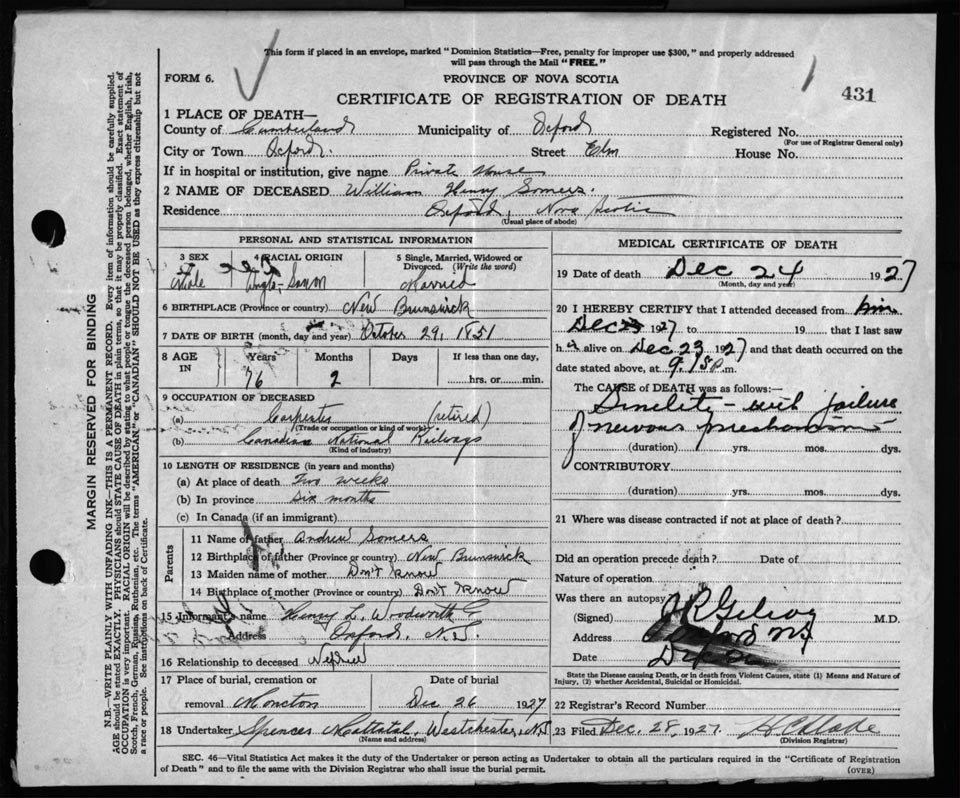 This form if placed in an envelope, marked "Dominion Statistics—Free, penalty for improper use $300," and properly addressed
will pass through the Mail "FREE."
FORM 6. PROVINCE OF NOVA SCOTIA
431
CERTIFICATE OF REGISTRATION OF DEATH
1 PLACE OF DEATH—
County of Cumberland Municipality of Oxford Registered No.
(For use of Registrar General only)
City or Town Oxford. Street Elm House No.
If in hospital or institution, give name Private House
2 NAME OF DECEASED William Henry Somers.
Residence Oxford, Nova Scotia
(Usual place of abode)
PERSONAL AND STATISTICAL INFORMATION
3 SEX 4 RACIAL ORIGIN 5 Single, Married, Widowed or
Divorced. (Write the word)
Male Anglo-Saxon Married
6 BIRTHPLACE (Province or country) New Brunswick
7 DATE OF BIRTH (month, day and year) October 29, 1851
8 AGE IN Years Months Days If less than one day,
76 2 hrs. or min.
9 OCCUPATION OF DECEASED
(a) Carpenter (retired)
(Trade or occupation or kind of work)
(b) Canadian National Railways
(Kind of industry)
10 LENGTH OF RESIDENCE (in years and months)
(a) At place of death Two weeks
(b) In province Six months
(c) In Canada (if an immigrant)
Parents
11 Name of father Andrew Somers
12 Birthplace of father (Province or country) New Brunswick
13 Maiden name of mother Don't know
14 Birthplace of mother (Province or country) Don't know
15 Informant's name Henry L. Woodworth
Address Oxford, N.S.
16 Relationship to deceased Nephew
17 Place of burial, cremation Date of burial
or removal Moncton Dec 26 1927
18 Undertaker Spencer Mattatal, Westchester, N.S.
(Name and address)
MEDICAL CERTIFICATE OF DEATH
19 Date of death Dec 24 1927
(Month, day and year)
20 I HEREBY CERTIFY that I attended deceased from
Dec 23 1927 to 19 that I last saw
h alive on Dec 23 1927 and that death occurred on the
date stated above, at 9.15 P.m.
The CAUSE of DEATH was as follows:—
Senility - with failure
of nervous
(duration) yrs. mos. dys.
CONTRIBUTORY
(duration) yrs. mos. dys.
21 Where was disease contracted if not at place of death?
Did an operation precede death? Date of
Nature of operation
Was there an autopsy?
(Signed) M.D.
Address
Date
State the Disease causing Death, or in death from Violent Causes, state (1) Means and Nature of
Injury, (2) whether Accidental, Suicidal or Homicidal.
22 Registrar's Record Number
23 Filed Dec. 28, 1927.
(Division Registrar)
SEC. 46—Vital Statistics Act makes it the duty of the Undertaker or person acting as Undertaker to obtain all the particulars required in the "Certificate of Registration
of Death" and to file the same with the Division Registrar who shall issue the burial permit. (OVER)
MARGIN RESERVED FOR BINDING
N.B.—WRITE PLAINLY WITH UNFADING INK—THIS IS A PERMANENT RECORD. Every item of information should be carefully supplied.
AGE should be stated EXACTLY. PHYSICIANS should STATE CAUSE OF DEATH in plain terms, so that it may be properly classified. Exact statement of
OCCUPATION is very important. RACIAL ORIGIN will be described by stating to what people or tongue the deceased person belonged, whether English, Irish,
Scotch, French, German, Russian, Ruthenian, etc. The terms "AMERICAN" or "CANADIAN" SHOULD NOT BE USED as they express citizenship but not
a race or people. See instructions on back of Certificate.